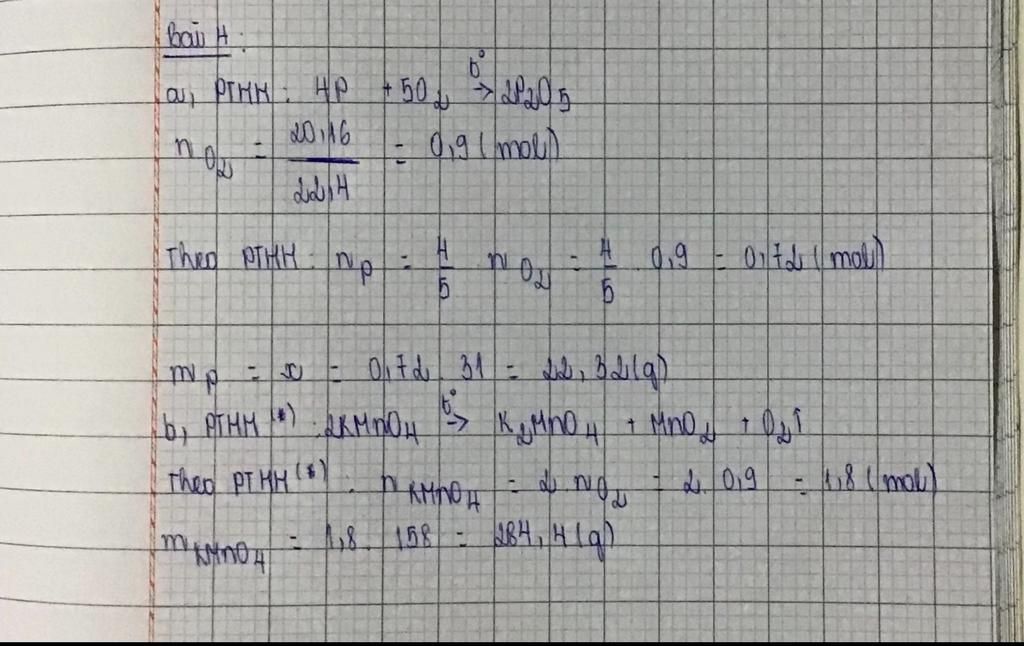 Bài 4:
a, PTHH: 4P + 5O₂ t°→ 2P2O5
n O₂ = 20,16 / 22,4 = 0,9 (mol)
Theo PTHH: n P = 4/5 . n O₂ = 4/5 . 0,9 = 0,72 (mol)
m P = x = 0,72 . 31 = 22,32 (g)
b, PTHH (*) : 2KMnO4 t°→ K₂MnO4 + MnO₂ + O₂↑
Theo PTHH (*) : n KMnO4 = 2. n O₂ = 2. 0,9 = 1,8 (mol)
m KMnO4 = 1,8 . 158 = 284,4 (g)